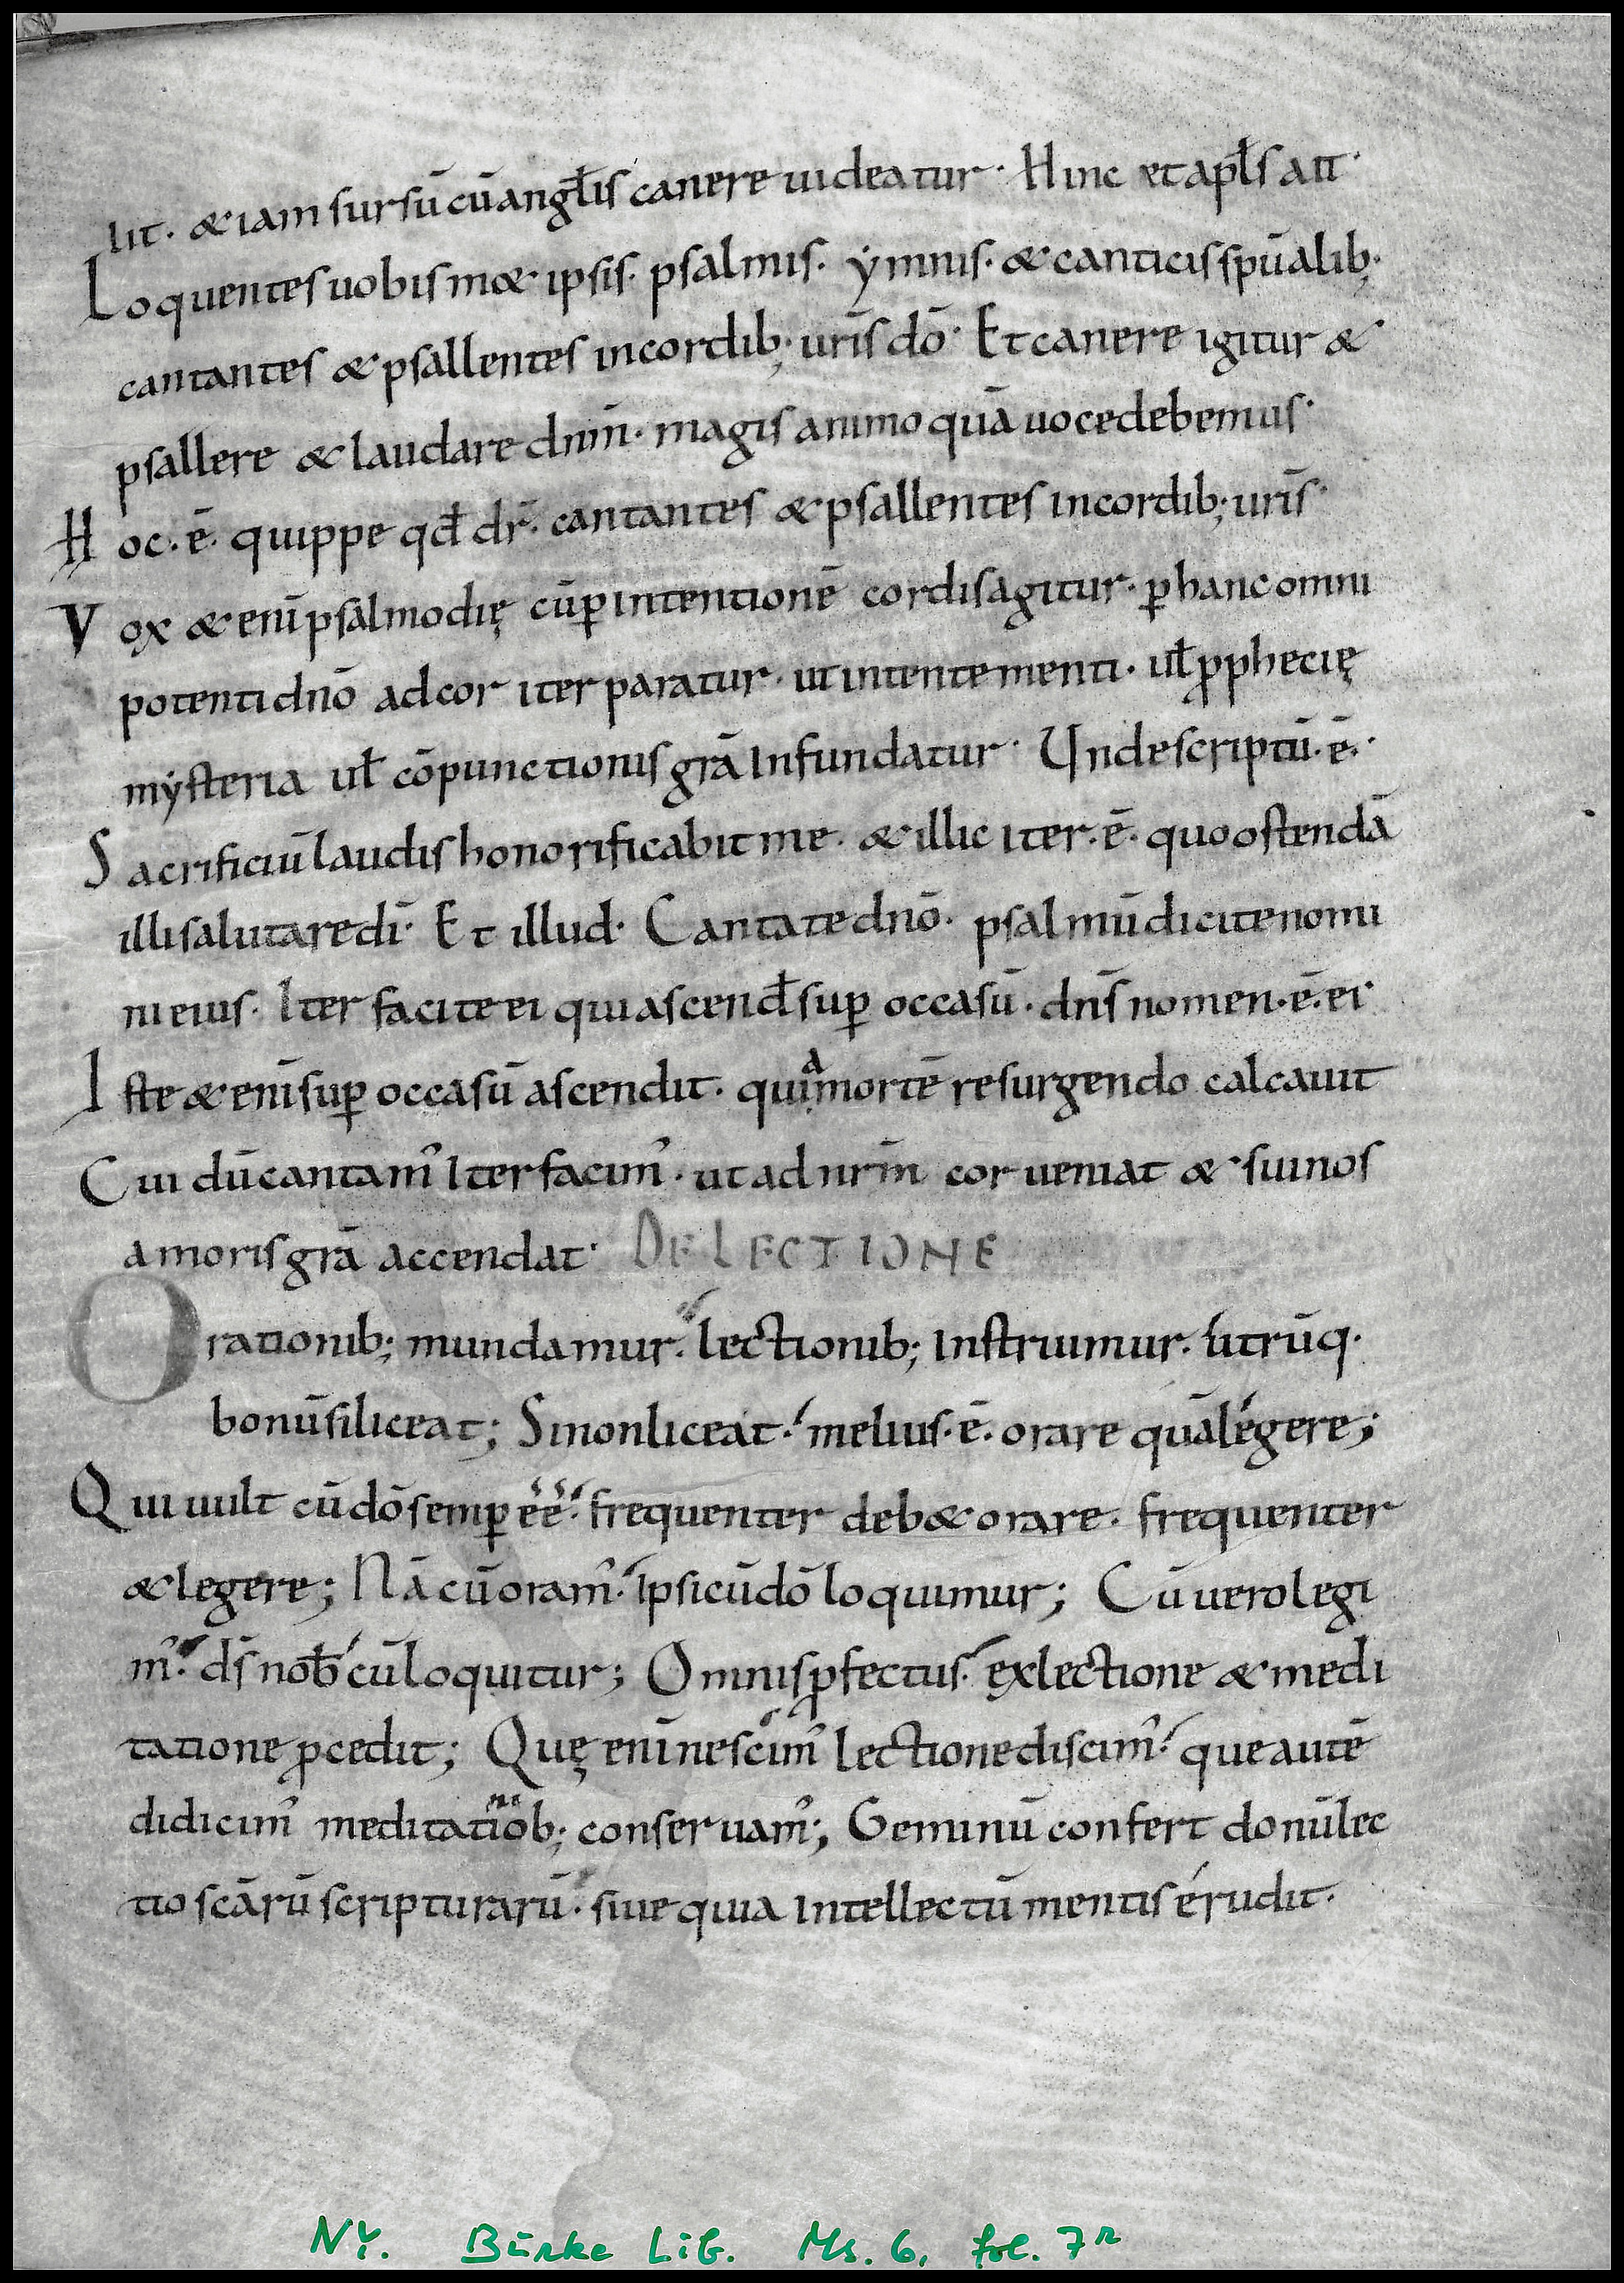 lit. & iam sursū cū angl̄is canere uideatur. Hinc et apl̄s ait.
Loquentes uobism& ipsis. psalmis. ẏmnis. & canticis sp̄ualib;
cantantes & psallentes in cordib; ur̄is dō. Et canere igitur &
psallere & laudare dnm̄. magis animo quā uoce debemus.
Hoc .ē. quippe qd̄ dr̄. cantantes & psallentes in cordib; ur̄is.
Vox &eni psalmodię cū ꝑ intentionē cordis agitur. ꝑ hanc omni
potenti dnō ad cor iter paratur. ut intente menti. ul̄ ꝓphecię
mẏsteria ul̄ cōpunctionis grā infundatur. Unde scriptū .ē.
Sacrificiū laudis honorificabit me. & illic iter .ē. quo ostendā
illi salutare dī. Et illud. Cantate dnō. psalmū dicite nomi
ni eius. Iter facite ei qui ascend̄ suꝑ occasū. dn̄s nomen .ē. ei
Iste &enī suꝑ occasū ascendit. quia mortē resurgendo calcauit
Cui dū cantam᾽ Iter facim᾽. ut ad nrm̄ cor ueniat & sui nos
amoris grā accendat. DE LECTIONE
Orationib; mundamur. lectionib; instruimur. utrūq.
bonū si liceat; Si non liceat. melius .ē. orare quā légere;
Qui uult cū dō semꝑ ēē. frequenter deb& orare. frequenter
& legere; Nā cū oram᾽. ipsi cū dō loquimur; Cū uero legi
m᾽. ds̄ nob̄cū loquitur; Omnis ꝓfectus. ex lectione & medi
tatione ꝓcedit; Quę enī nescim᾽ lectione discim᾽. que autē
didicim᾽ meditatiōib; conseruam᾽; Geminū confert donū lec
tio scārū scripturarū. siue quia intellectū mentis érudit.
NY. Burke Lib. Ms. 6, fol. 7r